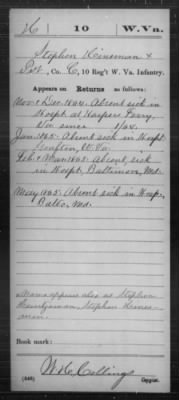 K | 10 | W. Va.
Stephen Kineman
Pvt, Co. C, 10 Reg't W. Va. Infantry.
Appears on Returns as follows:
Nov & Dec. 1864. Absent sick in
Hospt. at Harpers Ferry,
Va. since
Jan. 1865. Absent sick in Hospt.
Grafton, W. Va.
Feb. & Mar. 1865. Absent, sick
in Hospt. Baltimore, Md.
May 1865. Absent sick in Hosp.,
Balto., Md.
Name appears also as Stephen
Stephen
Book mark:
(546) Copyist.